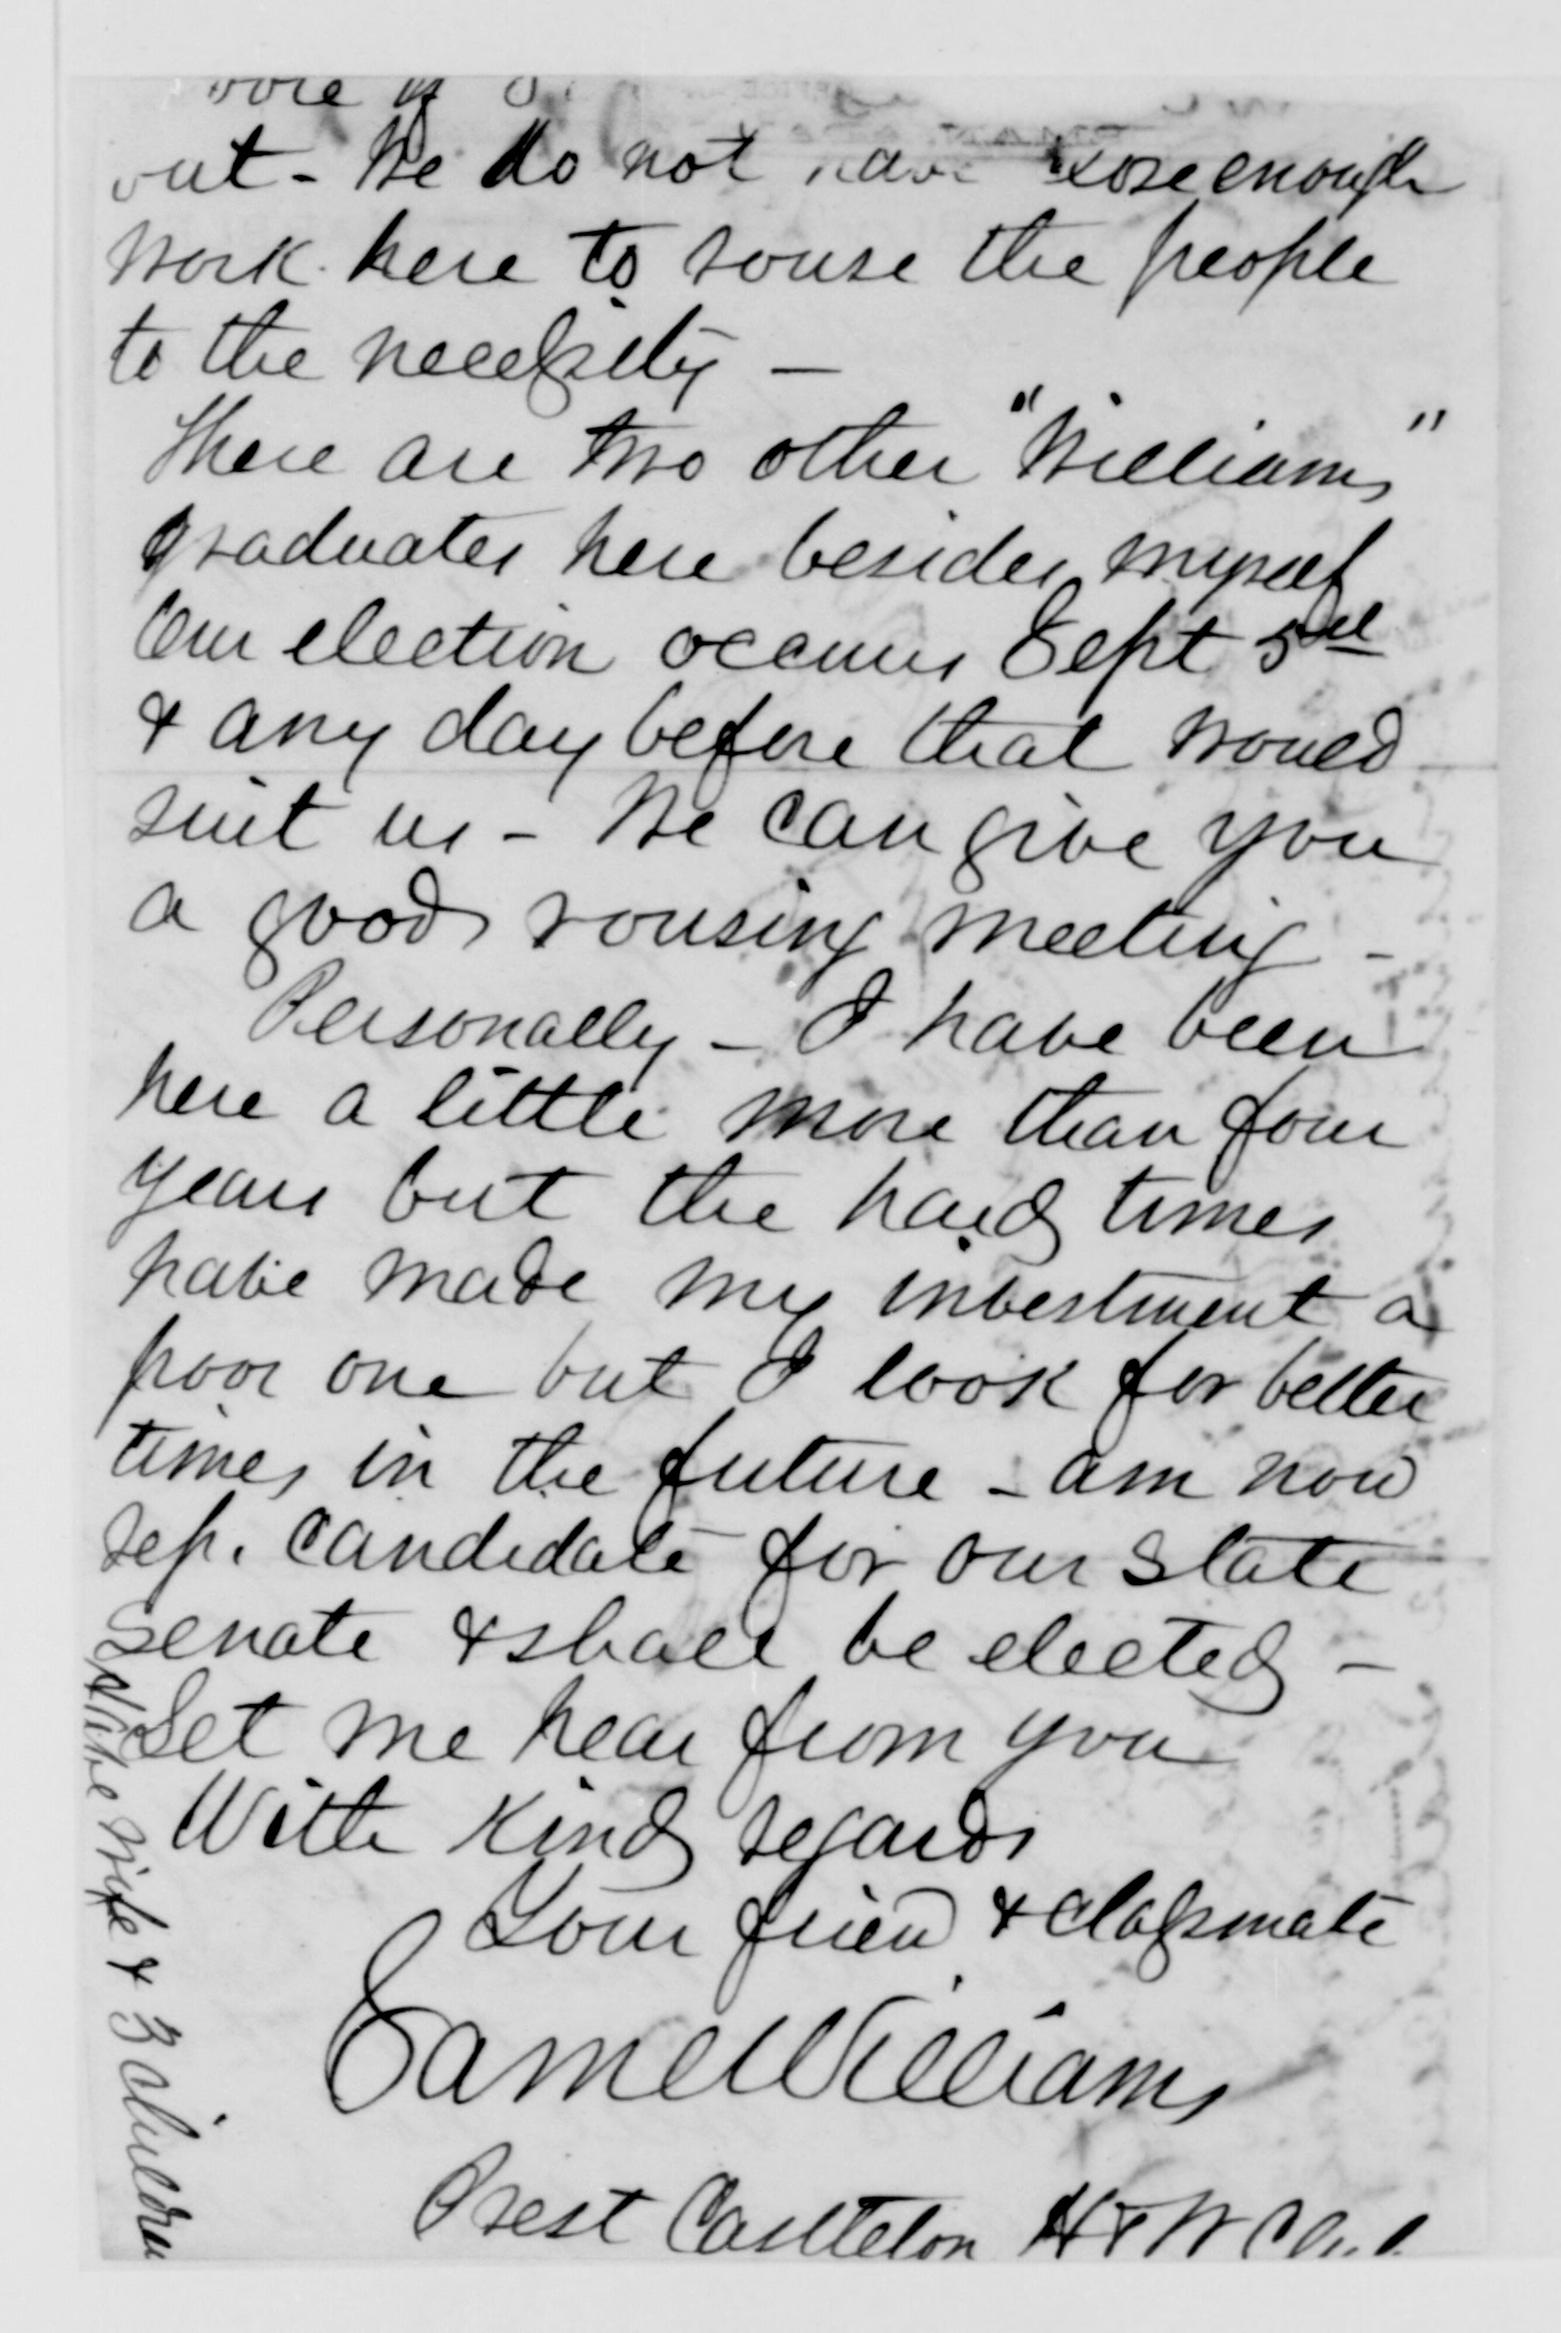 out - We do not have close enough
work here to rouse the people
to the necessity —
There are two other "Williams"
graduates here besides myself
Our election occurs Sept 5th
& any day before that would
suit us - We can give you
a good rousing meeting -
Personally - I have been
here a little more than four
years but the hard times
have made my investment a
poor one but I look for better
times in the future - am now
rep. candidate for our State
Senate & shall be elected -
Let me hear from you
With kind regards
Your friend & classmate
Saml Williams
Prest Castleton H & W Club
wife & 3 children